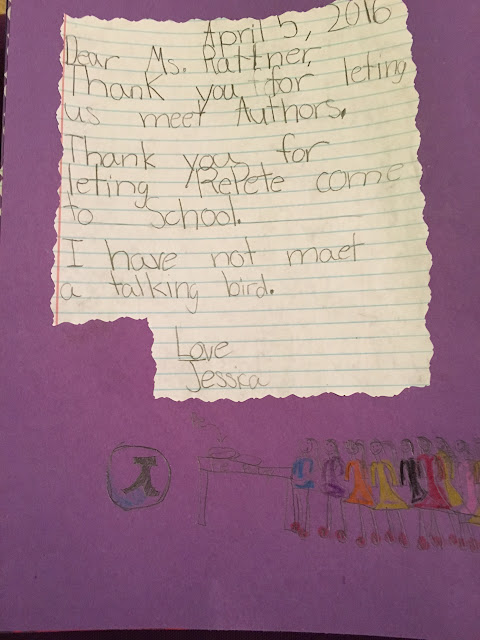 April 5, 2016
Dear Ms. Rattner,
Thank you for leting
us meet Authors.
Thank you for
leting RePete come
to School.
I have not maet
a talking bird.
Love
Jessica